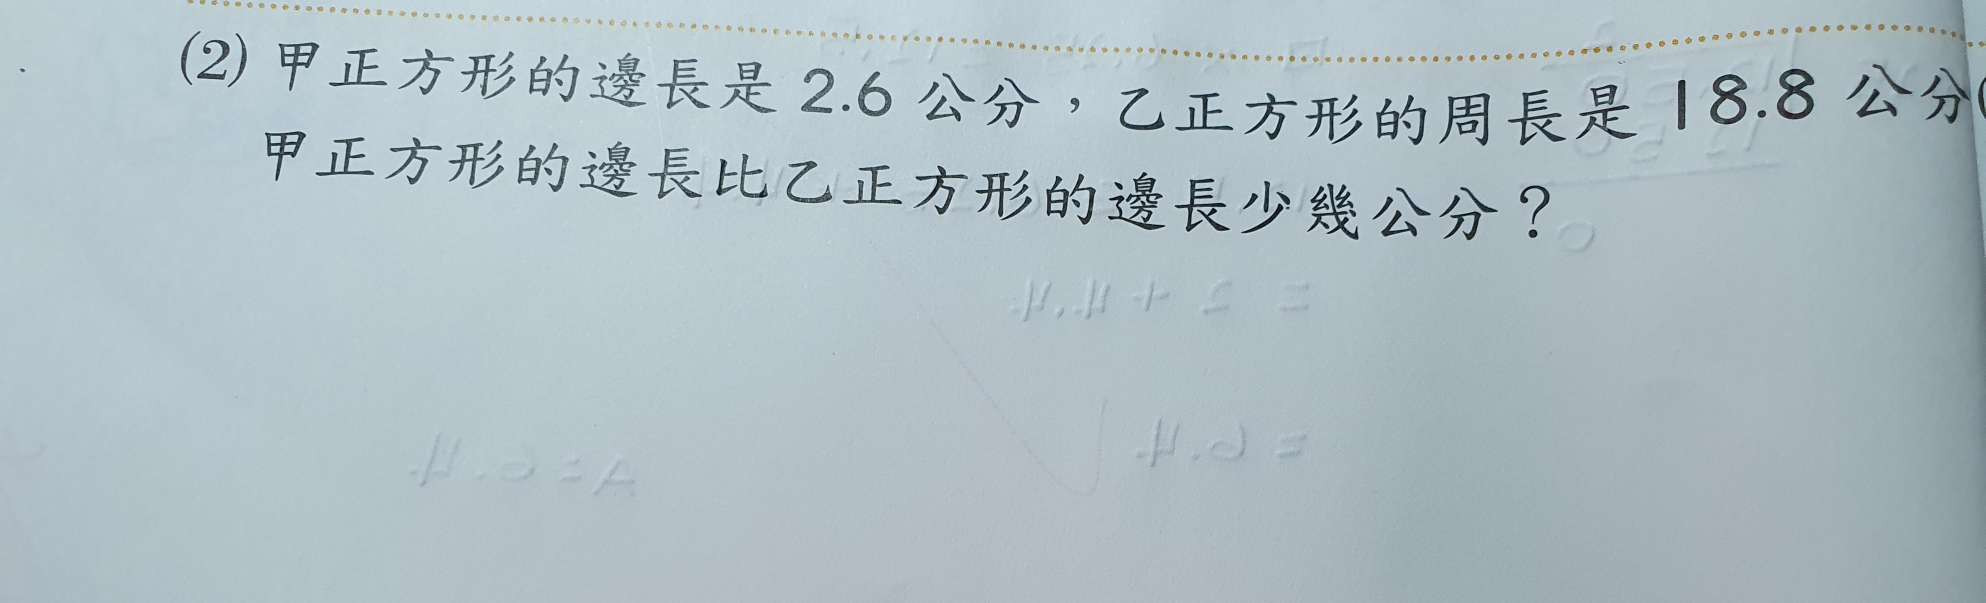 (2) 甲正方形的邊長是 2.6 公分，乙正方形的周長是 18.8 公分
甲正方形的邊長比乙正方形的邊長少幾公分？